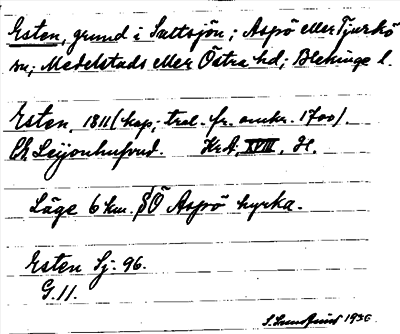 Esten, grund i Saltsjön; Aspö eller Tjurkö
sn; Medelstads eller Östra hd; Blekinge l.
Esten, 1811 (kop; trol. fr. omkr. 1700).
Ch. Leijonhufvud. KrA, XVIII, H.
Läge 6 km. SÖ Aspö kyrka.
Esten Sj. 96.
G. 11.
1936